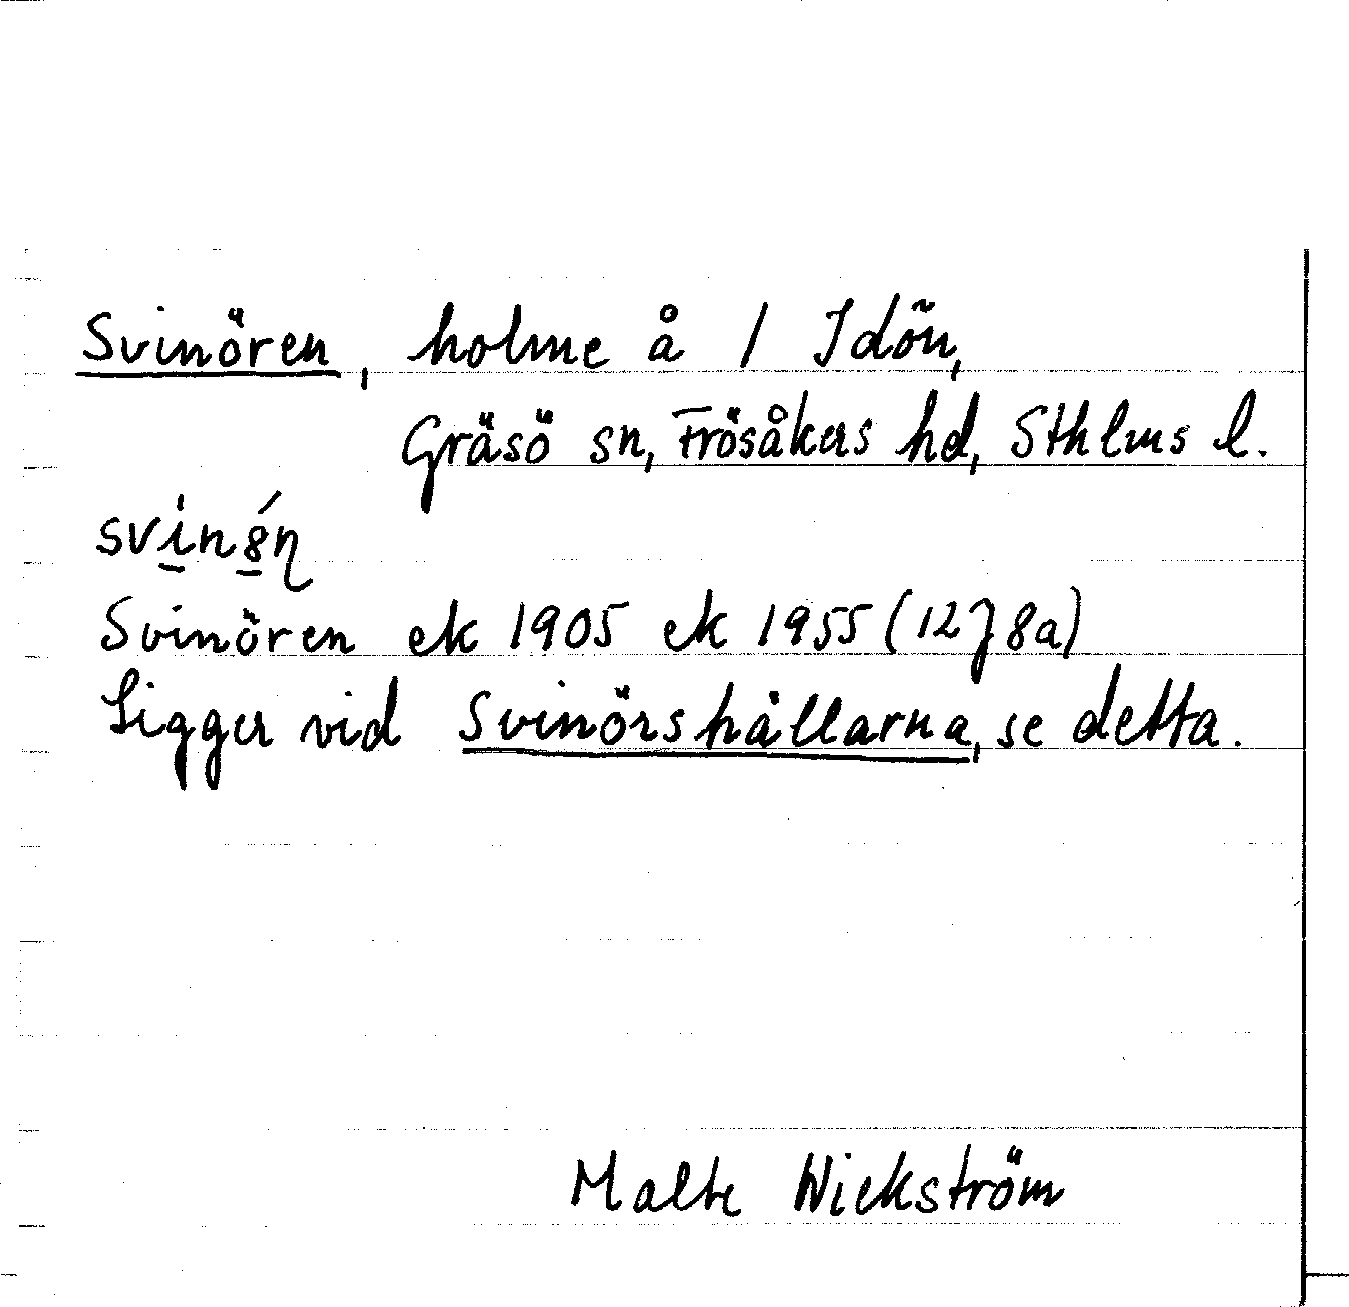 Svinören, holme å / Idön,
Gräsö sn, Frösåkers hd, Sthlms l.
svinǿn
Svinören ek 1905 ek 1955 (12J8a)
Ligger vid Svinörshällarna, se detta.
Malte Wickström